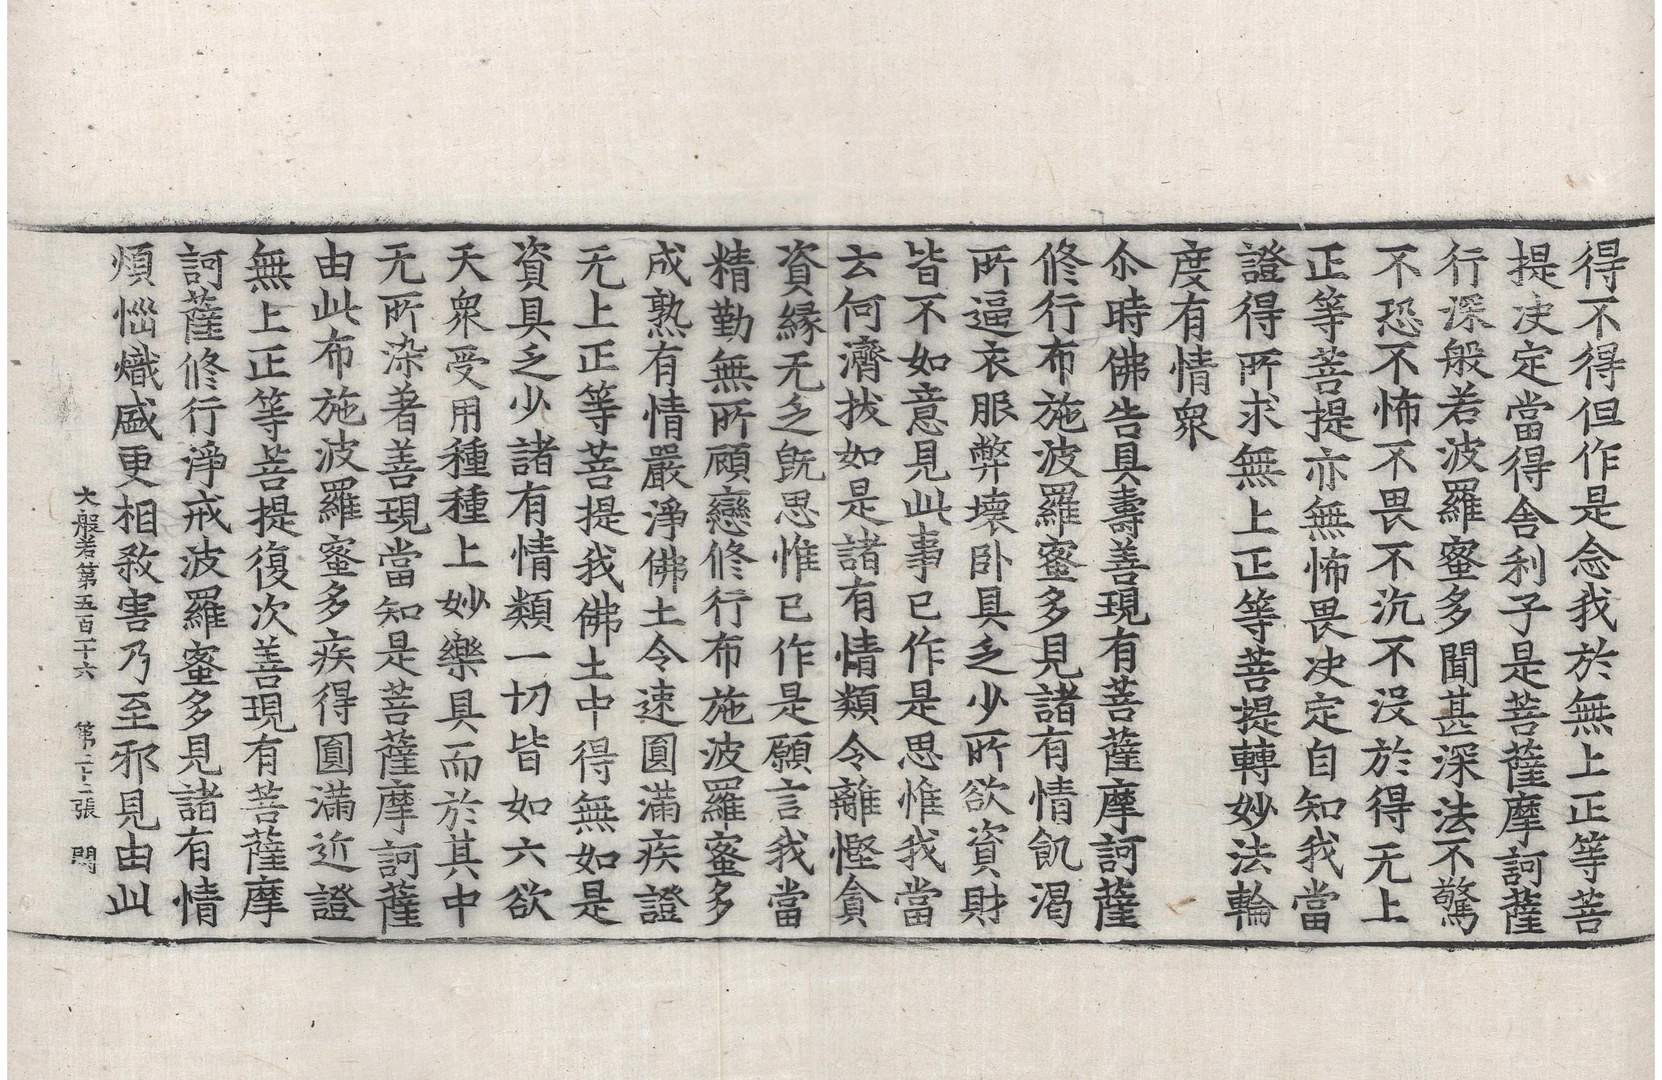 得不得但作是念我於無上正等菩
提决定當得舍利子是菩薩摩訶薩
行深般若波羅蜜多聞甚深法不驚
不恐不怖不畏不沉不没於得无上
正等菩提亦無怖畏决定自知我當
證得所求無上正等菩提轉妙法輪
度有情衆
尒時佛告具壽善現有菩薩摩訶薩
修行布施波羅蜜多見諸有情飢渴
所逼衣服弊壞卧具乏少所欲資財
皆不如意見此事已作是思惟我當
云何濟拔如是諸有情類令離慳貪
資緣无乏旣思惟已作是願言我當
精勤無所顧戀修行布施波羅蜜多
成熟有情嚴淨佛土令速圓滿疾證
无上正等菩提我佛土中得無如是
資具乏少諸有情類一切皆如六欲
天衆受用種種上妙樂具而於其中
无所染著善現當知是菩薩摩訶薩
由此布施波羅蜜多疾得圓滿近證
無上正等菩提復次善現有菩薩摩
訶薩修行淨戒波羅蜜多見諸有情
煩惱熾盛更相敎害乃至邪見由此
大般若第五百二十六 第二十二張 闕